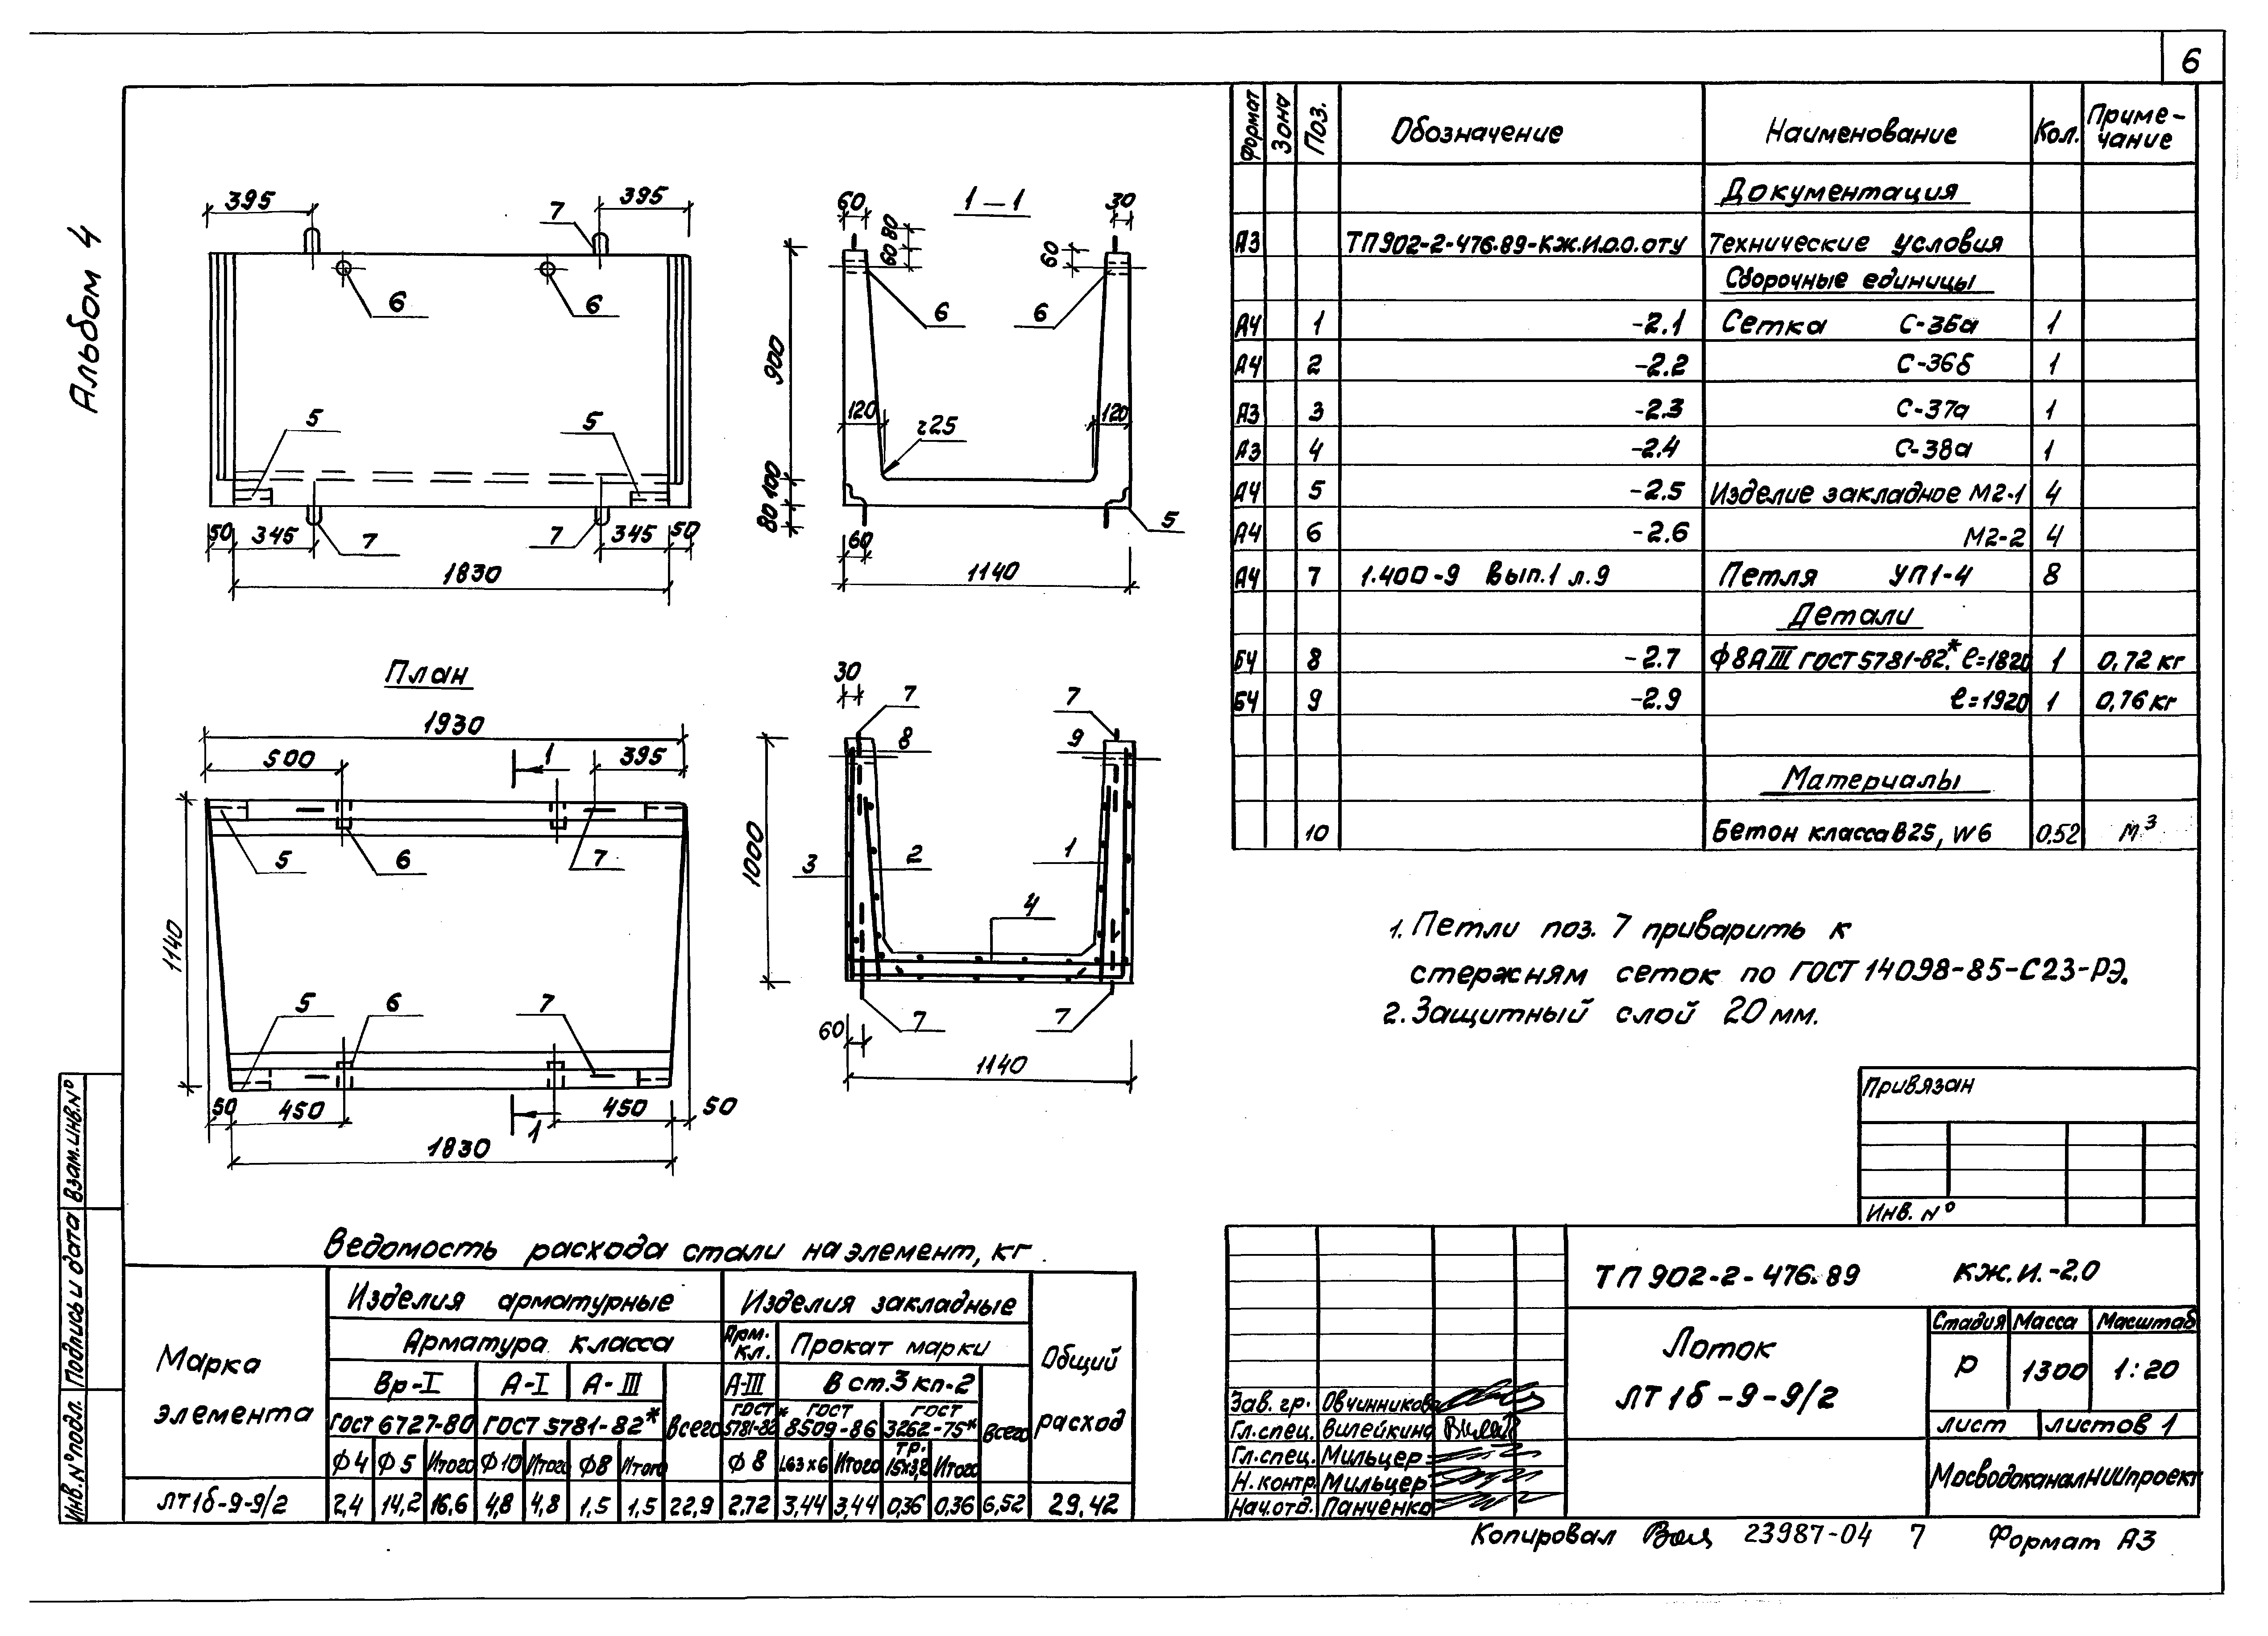 6
Альбом 4
395
7
395
6
6
5
5
50
345
7
7
345
50
1830
1-1
60
60 80
60
30
6
6
900
120
120
r25
100
80
60
5
1140
План
1930
500
1
395
5
6
7
1140
5
6
7
50
450
1
450
50
1830
30
7
7
8
9
1000
3
2
1
4
60
7
7
1140
Формат Зона Поз. Обозначение Наименование Кол. Приме-
чание
Документация
А3 ТП902-2-476.89-КЖ.И.О.О.ОТУ Технические условия
Сборочные единицы
А4 1 -2.1 Сетка С-36а 1
А4 2 -2.2 С-36б 1
А3 3 -2.3 С-37а 1
А3 4 -2.4 С-38а 1
А4 5 -2.5 Изделие закладное М2-1 4
А4 6 -2.6 М2-2 4
А4 7 1.400-9 Вып.1 л.9 Петля УП1-4 8
Детали
БЧ 8 -2.7 Ф8АIII ГОСТ5781-82* ℓ=1820 1 0,72 кг
БЧ 9 -2.9 ℓ=1920 1 0,76 кг
Материалы
10 Бетон класса В25, W6 0,52 м³
1. Петли поз. 7 приварить к
стержням сеток по ГОСТ 14098-85-С23-РЭ.
2. Защитный слой 20 мм.
Привязан
Инв. №
Взам.инв.№
Подпись и дата
Инв.№подл.
Ведомость расхода стали на элемент, кг
Марка
элемента
Изделия арматурные
Изделия закладные
Общий
расход
Арматура класса
Арм.
кл.
Прокат марки
Вр-I А-I А-III
Всего
А-III
В ст.3 кп-2
Всего
ГОСТ 6727-80 ГОСТ 5781-82*
ГОСТ
5781-82*
ГОСТ
8509-86
ГОСТ
3262-75*
Ф4 Ф5 Итого Ф10 Итого Ф8 Итого Ф8 L63×6 Итого Тр.
15×3,2 Итого
ЛТ1б-9-9/2 2,4 14,2 16,6 4,8 4,8 1,5 1,5 22,9 2,72 3,44 3,44 0,36 0,36 6,52 29,42
ТП 902-2-476.89 КЖ.И.-2.0
Лоток
ЛТ1б-9-9/2
Стадия Масса Масштаб
Р 1300 1:20
Лист Листов 1
МосводоканалНИИпроект
Зав. гр. Овчинникова
Гл.спец. Вилейкина
Гл.спец. Мильцер
Н.контр. Мильцер
Нач.отд. Панченко
Копировал 23987-04 7 Формат А3